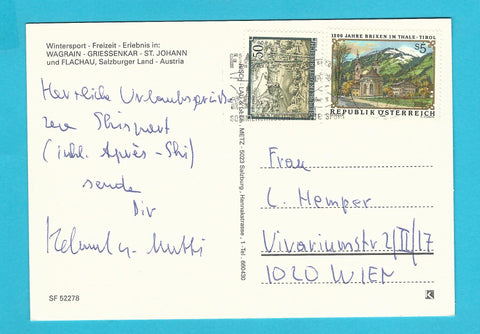 Wintersport - Freizeit - Erlebnis in:
WAGRAIN - GRIESSENKAR - ST. JOHANN
und FLACHAU, Salzburger Land - Austria
50
1200 JAHRE BRIXEN IM THALE - TIROL
S5
REPUBLIK ÖSTERREICH
Herrliche Urlaubsgrüße
Skisport
(inkl. Après-Ski)
sende
Dir
Helmut
METZ - 5023 Salzburg
Tel. 660430
Frau
C. Hemper
Vivariumstr 2/II/17
1020 WIEN
SF 52278
K